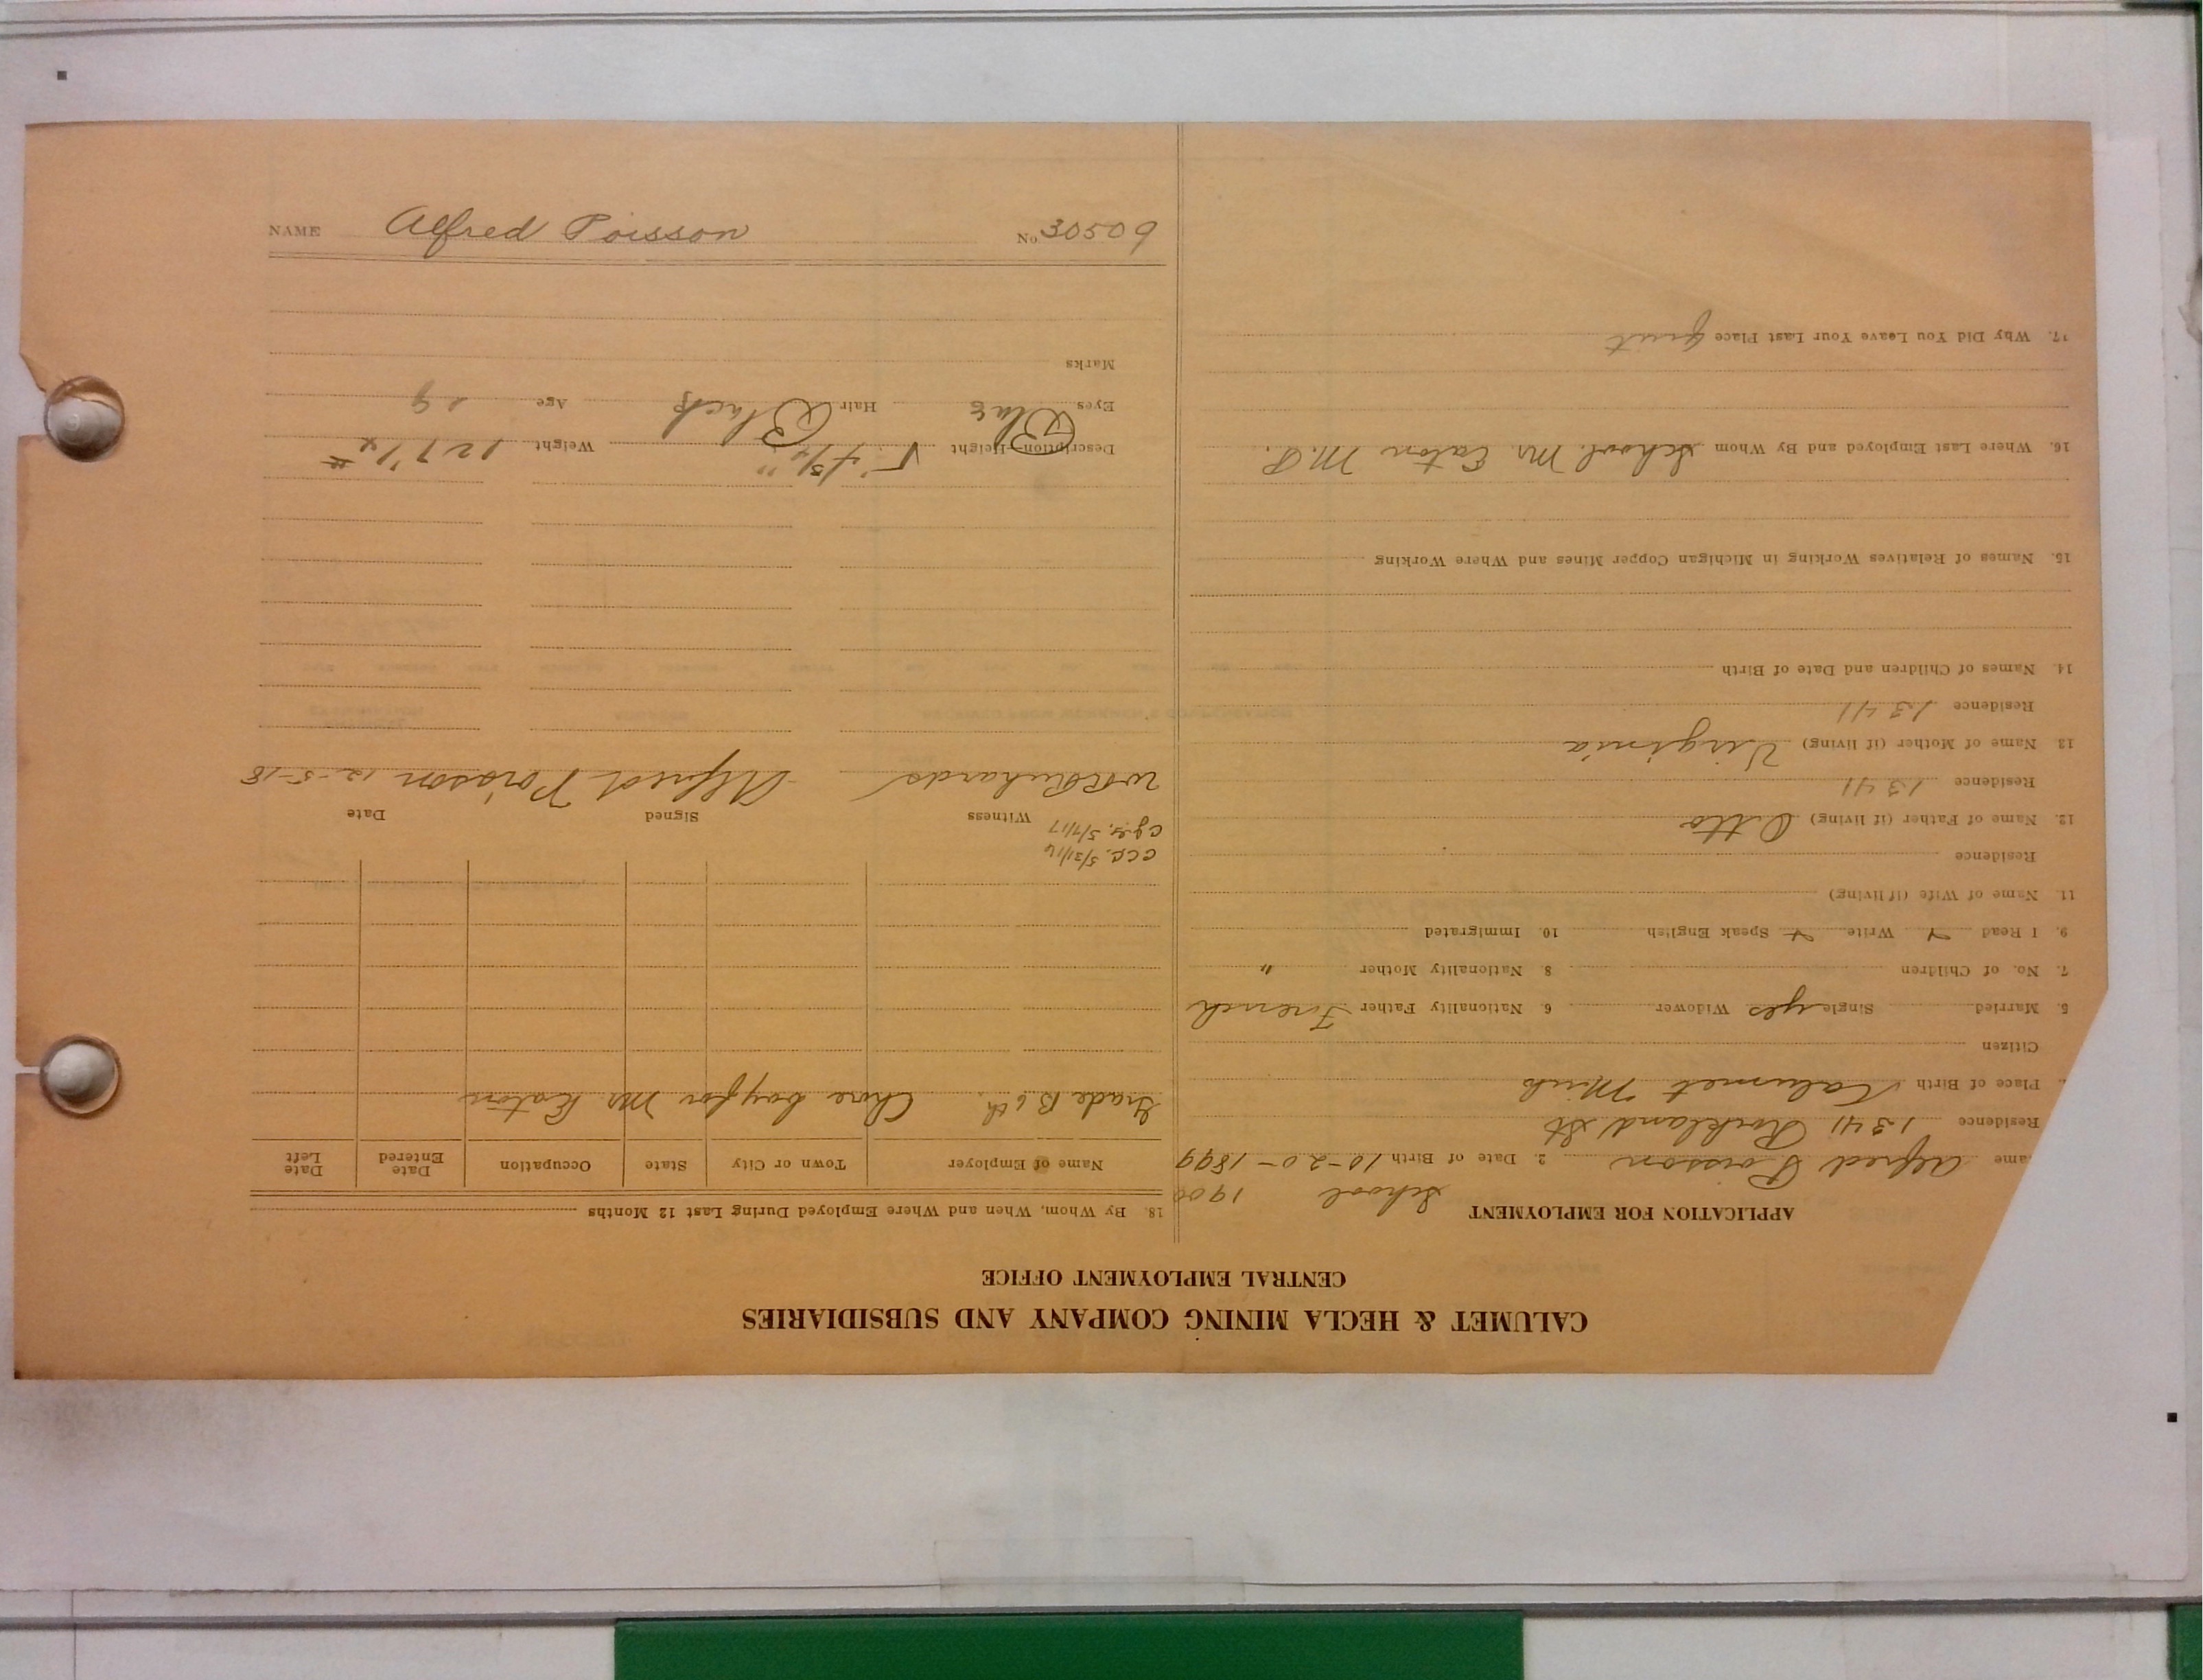 CALUMET & HECLA MINING COMPANY AND SUBSIDIARIES
CENTRAL EMPLOYMENT OFFICE
APPLICATION FOR EMPLOYMENT School 1900
ame Alfred Poisson 2. Date of Birth 10-20-1899
Residence 1341 Rockland St
Place of Birth Calumet Mich
Citizen
5. Married Single yes Widower 6. Nationality Father French
7. No. of Children 8. Nationality Mother "
9. I Read Write Speak English 10. Immigrated
11. Name of Wife (if living)
Residence
12. Name of Father (if living) Otto
Residence 1341
13. Name of Mother (if living) Virginia
Residence 1341
14. Names of Children and Date of Birth
15. Names of Relatives Working in Michigan Copper Mines and Where Working
16. Where Last Employed and By Whom School. Mr. Eaton M.P.
17. Why Did You Leave Your Last Place quit
18. By Whom, When and Where Employed During Last 12 Months
Name of Employer Town or City State Occupation Date Entered Date Left
Grade B 6th. Chore boy for Mr Eaton
CCC. 5/31/16
5/7/17
Witness Signed Date
W R Richards Alfred Poisson 12-5-18
Description—Height Weight 127 1/2 #
Eyes Blue Hair Black Age 19
Marks
NAME Alfred Poisson No 30509